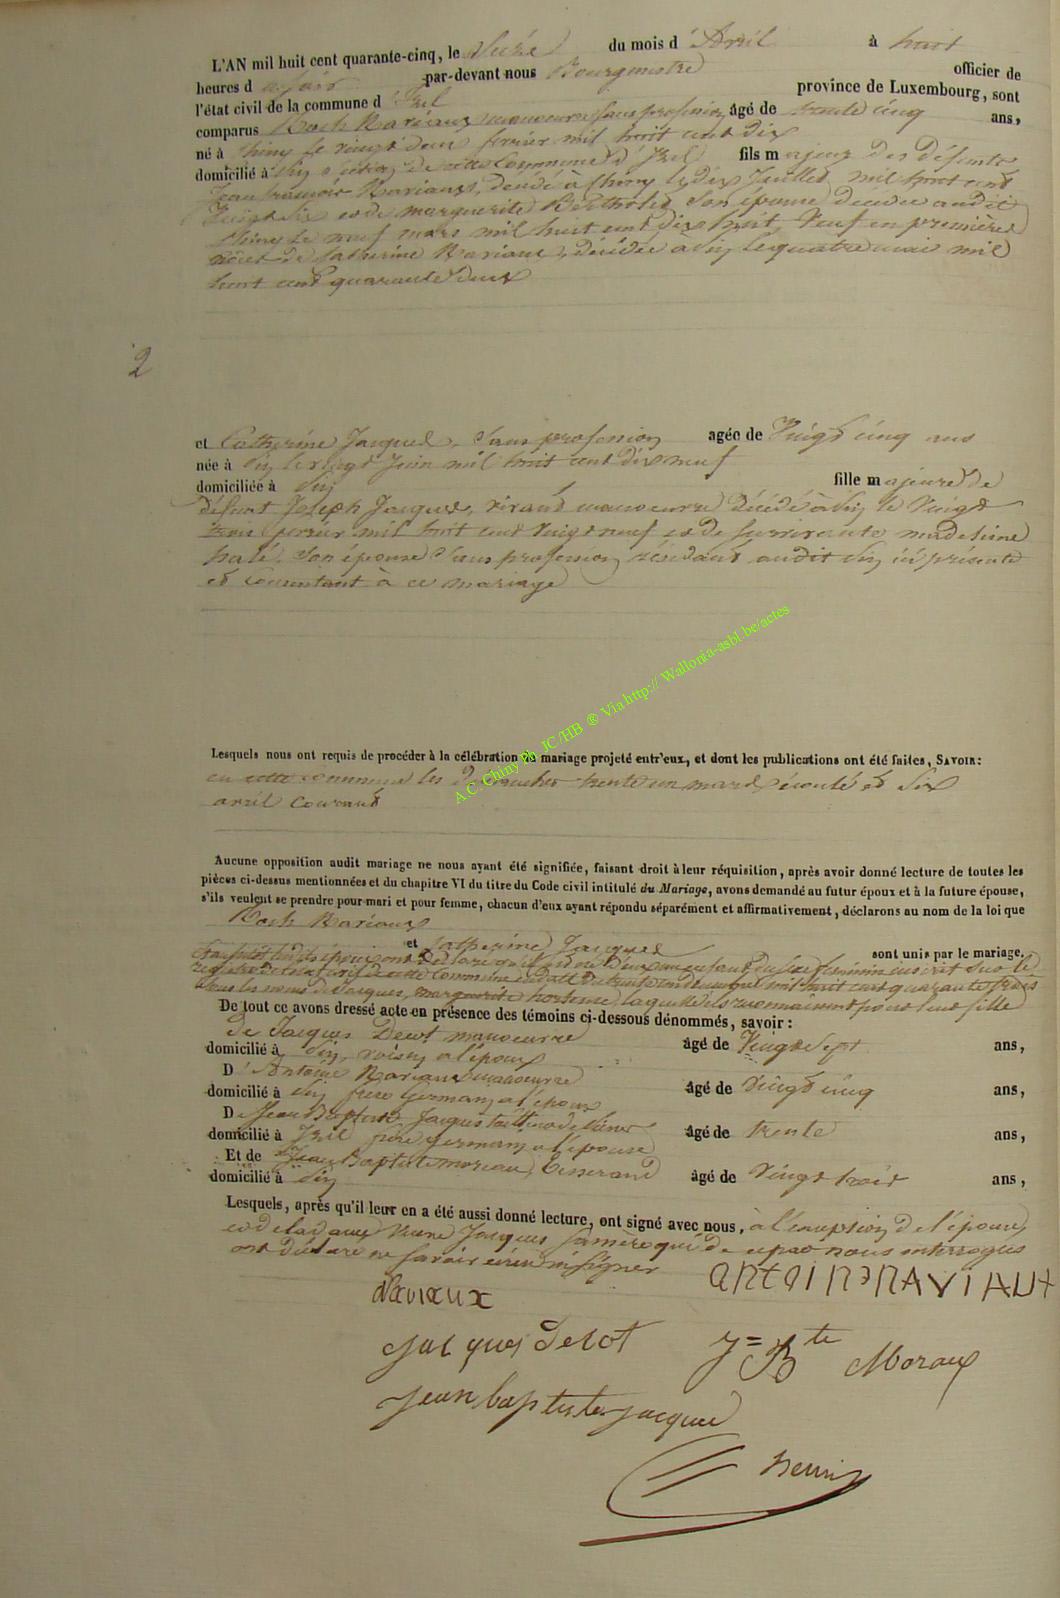 L'AN mil huit cent quarante-cinq, le seize du mois d'Avril à huit
heures du soir par-devant nous Bourgmestre officier de
l'état civil de la commune d'Izel province de Luxembourg, sont
comparus Roch Raviaux manoeuvre sans profession âgé de trente cinq ans,
né à Chiny le vingt deux février mil huit cent dix
domicilié à section de cette Commune d'Izel fils majeur des défunts
Jean françois Raviaux, décédé à Chiny le dix Juillet mil huit cent
Vingt Six et de marguerite Berthollet Son épouse décédée audit
Chiny le neuf mars mil huit cent dix huit, Veuf en premières
nôces de Catherine Raviaux, décédée le quatre mai mil
huit cent quarante deux
2
et Catherine Jacques, Sans profession agée de Vingt cinq ans
née à le vingt Juin mil huit cent dix neuf
domiciliée à fille majeure de
défunt Joseph Jacques, vivant manoeuvre décédé à le Vingt
trois février mil huit cent Vingt neuf et de Survivante madeleine
Son épouse Sans profession résidant audit ici présente
et Consentant à ce mariage
A.C. Chiny Ph. JC /HB ® Via http:// Wallonia-asbl.be/actes
Lesquels nous ont requis de procéder à la célébration du mariage projeté entr'eux, et dont les publications ont été faites, SAVOIR:
en cette commune les Dimanches trente un mars écoulé et Six
avril Courant
Aucune opposition audit mariage ne nous ayant été signifiée, faisant droit à leur réquisition, après avoir donné lecture de toutes les
pièces ci-dessus mentionnées et du chapitre VI du titre du Code civil intitulé du Mariage, avons demandé au futur époux et à la future épouse,
s'ils veulent se prendre pour mari et pour femme, chacun d'eux ayant répondu séparément et affirmativement, déclarons au nom de la loi que
Roch Raviaux
et Catherine Jacques sont unis par le mariage.
Et aussitôt lesdits époux ont déclaré qu'il est né d'eux un enfant du sexe féminin inscrit sur le
registre de l'état civil de cette Commune en date du mil huit cent quarante trois
sous les noms de Jacques, marguerite hortense laquelle ils reconnaissent pour leur fille
De tout ce avons dressé acte en présence des témoins ci-dessous dénommés, savoir:
De Jacques manoeuvre âgé de Vingt Sept ans,
domicilié à voisin à l'époux
D'Antoine Raviaux manoeuvre âgé de Vingt cinq ans,
domicilié à frère germain à l'époux
De Jean Baptiste Jacques âgé de trente ans,
domicilié à Izel frère germain à l'épouse
Et de Jean Baptiste moreau tisserand âgé de Vingt trois ans,
domicilié à
Lesquels, après qu'il leur en a été aussi donné lecture, ont signé avec nous, à l'exception de l'épouse
et de la dame Jacques Sa mère qui de ce par nous interrogées
ont déclaré ne Savoir écrire ni Signer
Raviaux
Jacques
Jean baptiste Jacques
Henri